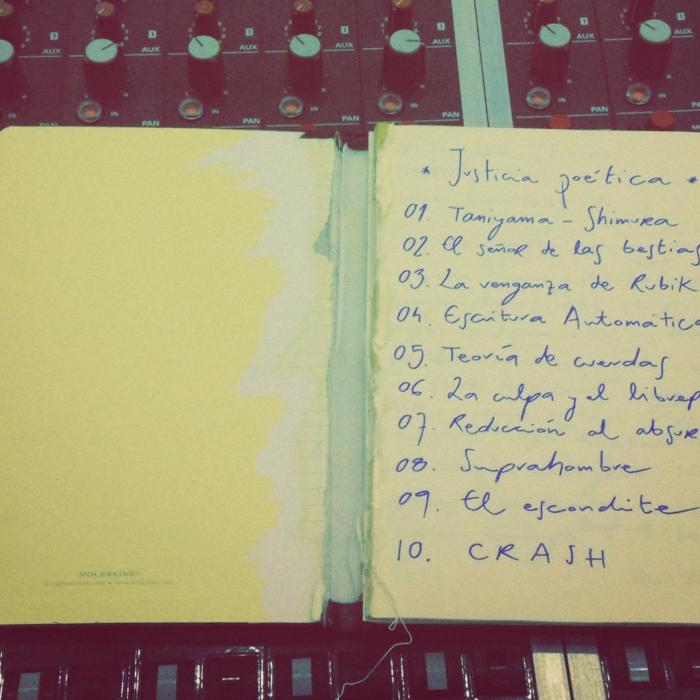 1 AUX 1 AUX 1 AUX 1 AUX 1 AUX 1 AUX
IN PAN IN PAN IN PAN IN PAN IN PAN IN PAN
* Justicia poética *
01. Taniyama - Shimura
02. El señor de las bestias
03. La venganza de Rubik
04. Escritura Automática
05. Teoría de cuerdas
06. La culpa y el librep
07. Reducción al absur
08. Suprahombre
09. El escondite
10. CRASH
MOLESKINE®